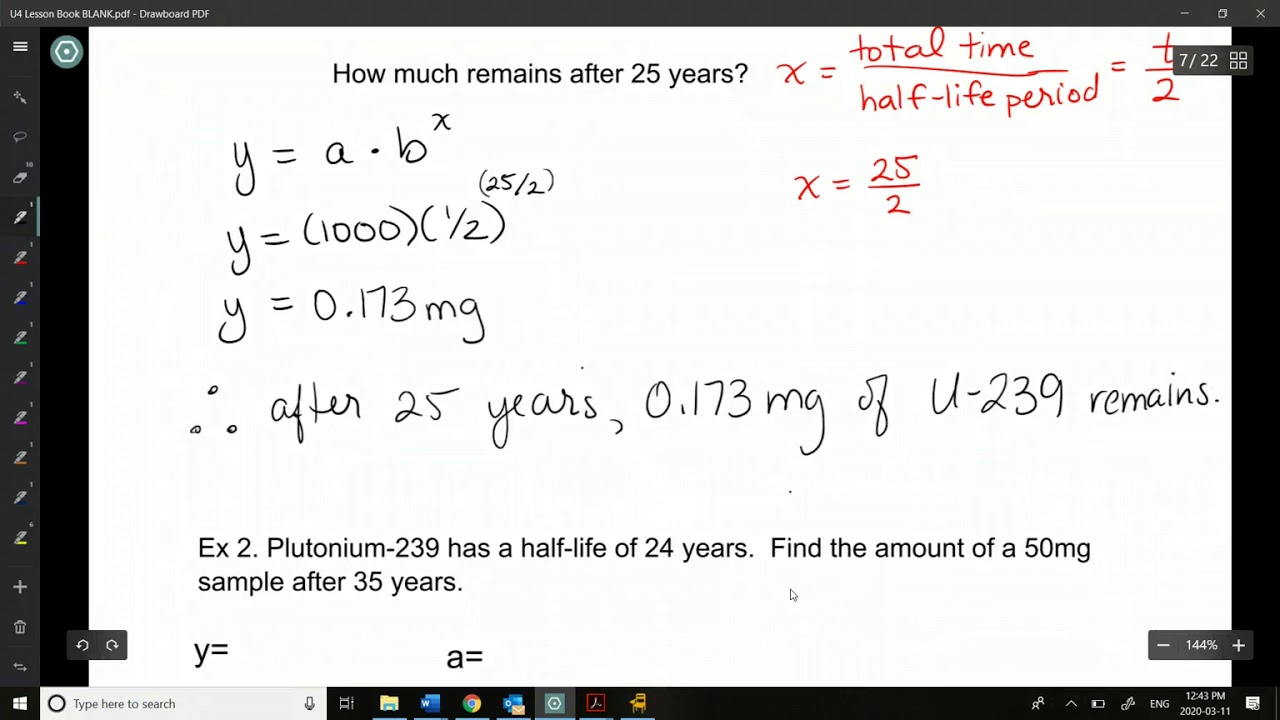 U4 Lesson Book BLANK.pdf - Drawboard PDF
7 / 22
How much remains after 25 years?
x = total time / half-life period = t / 2
y = a · b^x
x = 25 / 2
y = (1000)(1/2)^(25/2)
y = 0.173 mg
∴ after 25 years, 0.173 mg of U-239 remains.
Ex 2. Plutonium-239 has a half-life of 24 years. Find the amount of a 50mg
sample after 35 years.
y=
a=
144%
Type here to search
ENG
12:43 PM
2020-03-11